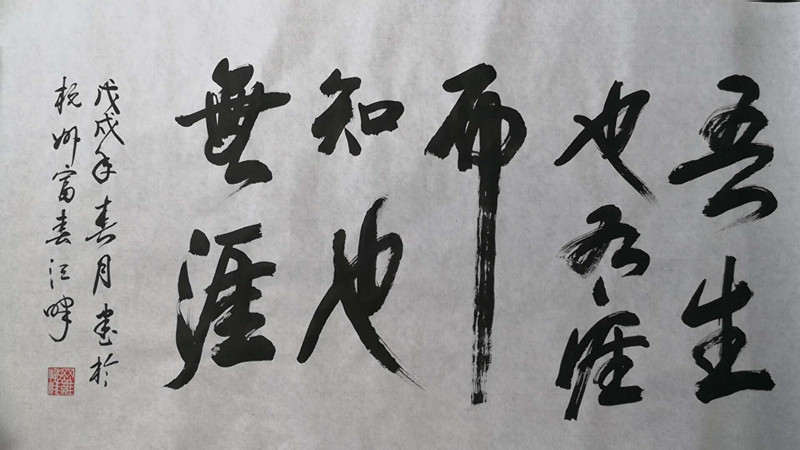 吾生
也有涯
而
知也
無涯
戊戌年春月书於
杭州富春江畔